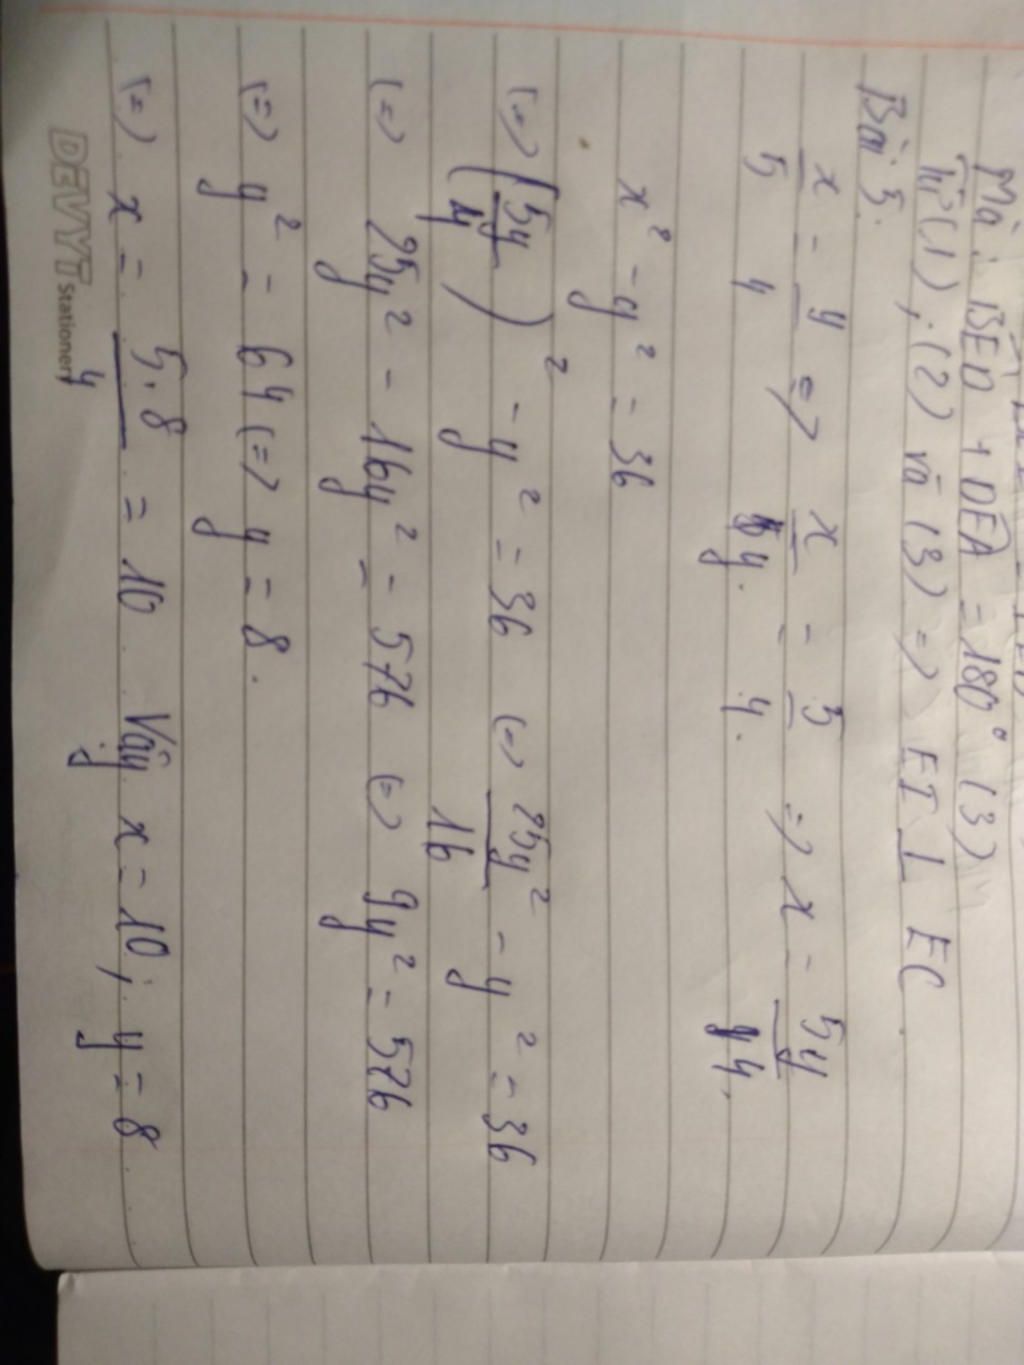 Mà: BED + DEA = 180° (3)
Từ (1), (2) và (3) => EI ⊥ EC.
Bài 5.
x/5 = y/4 => x/y = 5/4 => x = 5y/4
x² - y² = 36
(=) (5y/4)² - y² = 36 (=) 25y²/16 - y² = 36
(=) 25y² - 16y² = 576 (=) 9y² = 576
(=) y² = 64 (=) y = 8.
(=) x = 5.8/4 = 10 Vậy x = 10; y = 8
DEVYT Stationery